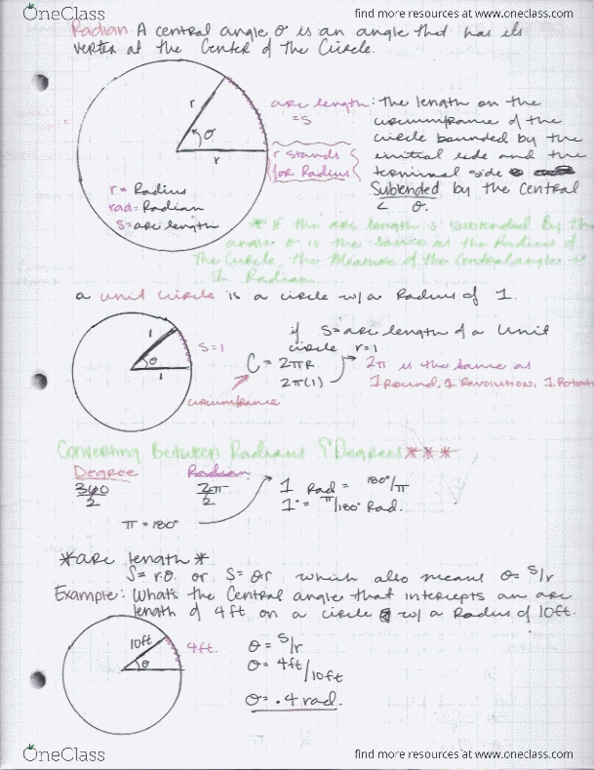 OneClass
find more resources at www.oneclass.com
Radian: A central angle θ is an angle that has its
vertex at the Center of the Circle.
r
θ
r
r = Radius
rad = Radian
s = arc length
arc length : the length on the
= s
circumfrance of the
circle bounded by the
r stands
for Radius
initial side and the
terminal side
Subtended by the Central
< θ.
* if the arc length s subtended By the
angle θ is the same as the Radius of
the Circle, the Measure of the Central angle is
1 Radian.
a unit circle is a circle w/ a Radius of 1.
1
θ
1
S=1
if S = arc length of a Unit
circle r=1
C = 2πR
2π(1)
2π is the same as
1 Round, 1 Revolution, 1 Rotati
circumfrance
Converting Between Radians & Degrees ***
Degree
Radian
360
2
2π
2
π = 180°
1 Rad = 180°/π
1° = π/180° Rad.
*arc length*
S = r·θ or S = θ·r which also means θ = S/r
Example: Whats the Central angle that intercepts an arc
length of 4ft on a circle w/ a Radius of 10ft.
10ft
θ
4ft.
θ = S/r
θ = 4ft/10ft
θ = .4 rad.
OneClass
find more resources at www.oneclass.com